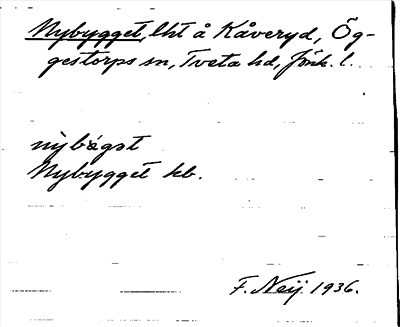 Nybygget, lht å Kåveryd, Ög-
gestorps sn, Tveta hd, Jönk. l.
Nybygget kb.
F. Neij 1936.